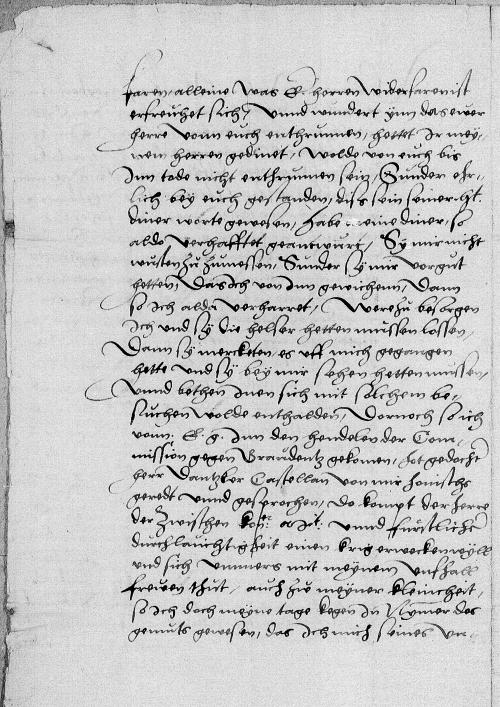 faren, alleine was E. herren widerfaren ist
erfreuhet sich, unnd wundert ynn das ewer
herre vonn euch enthrunnen, hettet Ir mey-
nem herren gedinet, wolde von euch bis
Inn tode nicht enthrunnen sein, Sunder ehr-
lich bey euch gestanden, dis sein seiner
diner worte gewesen, habe meine diner, so
aldo verhafftet geantwurt, Sy mir nicht
wusten zu zumessen, Sunder sy mir vorgut
hetten, das ich von Inn gewichenn, dann
so ich alda verharret, were zu besorgen
Ich und sy die helser hetten mussen lossen,
Dann sy merckten, es uff mich gegangen
hette und sy bey mir sehen hetten mussen,
unnd bethen Inen sich mit solchem be-
suchen wolde enthalden, Dornoch so ich
vonn E. g. Inn den hendelen der Com-
mission gegen Graudentz gekomen, hot gedocht
herr Dantzker Castellan von mir honischs
geredt unnd gesprochen, do kompt der herre
der zwischen unnd furstlicher
durchlauchtigkeit einen krig erwecken wyll
und sich ummers mit meynem unfhall
frewen thut, auch zu meyner kleinheit,
so ich doch meyne tage kegen In nymer des
gemuts gewesen, das ich mich seines un-